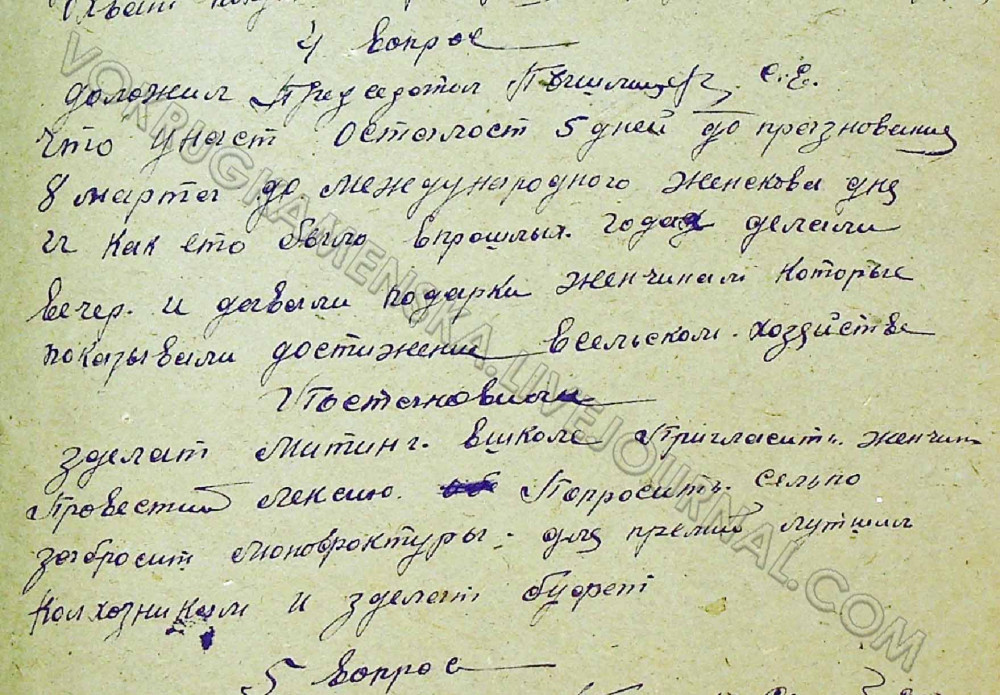 4 вопрос
доложил Председотол Пышминцев С.Е.
что унаст Осталост 5 дней до празнования
8 марта до международного женскова дня
и Как ето было впрошлых годах делали
вечер. и давали подарки женчинам которые
показывали достижения всельском. хозяйстве
Постановили
зделат митинг. вшколе Пригласить. женчин
Провестий лексию. Попросить. сельпо
забросит моноврактуры. для премий лутшим
Колхозникам и зделат буфет
5 вопрос
VOKRUGKAMENSKA.LIVEJOURNAL.COM